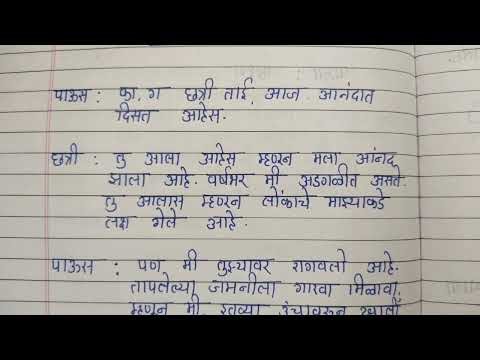 पाऊस : का. ग छत्री ताई, आज आनंदात
दिसत आहेस.
छत्री : तु आला आहेस म्हणून मला आनंद
झाला आहे. वर्षभर मी अडगळीत असते.
तु आलास म्हणून लोकांचे माझ्याकडे
लक्ष गेले आहे.
पाऊस : पण मी तुझ्यावर रागवलो आहे.
तापलेल्या जमनीला गारवा मिळावा,
म्हणून मी इतक्या उंचावरून खाली